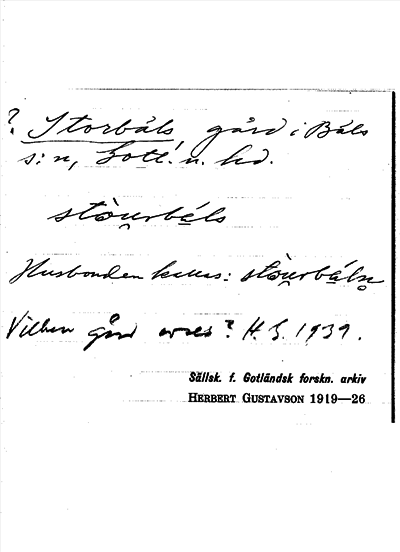 ? Storbåls, gård i Båls
s:n, Gotl. n. hd.
stòu̯rbå̱ls
Husbonden kallas: stòu̯rbå̱ln̥
Vilken gård avses? H. G. 1939.
Sällsk. f. Gotländsk forskn. arkiv
HERBERT GUSTAVSON 1919—26